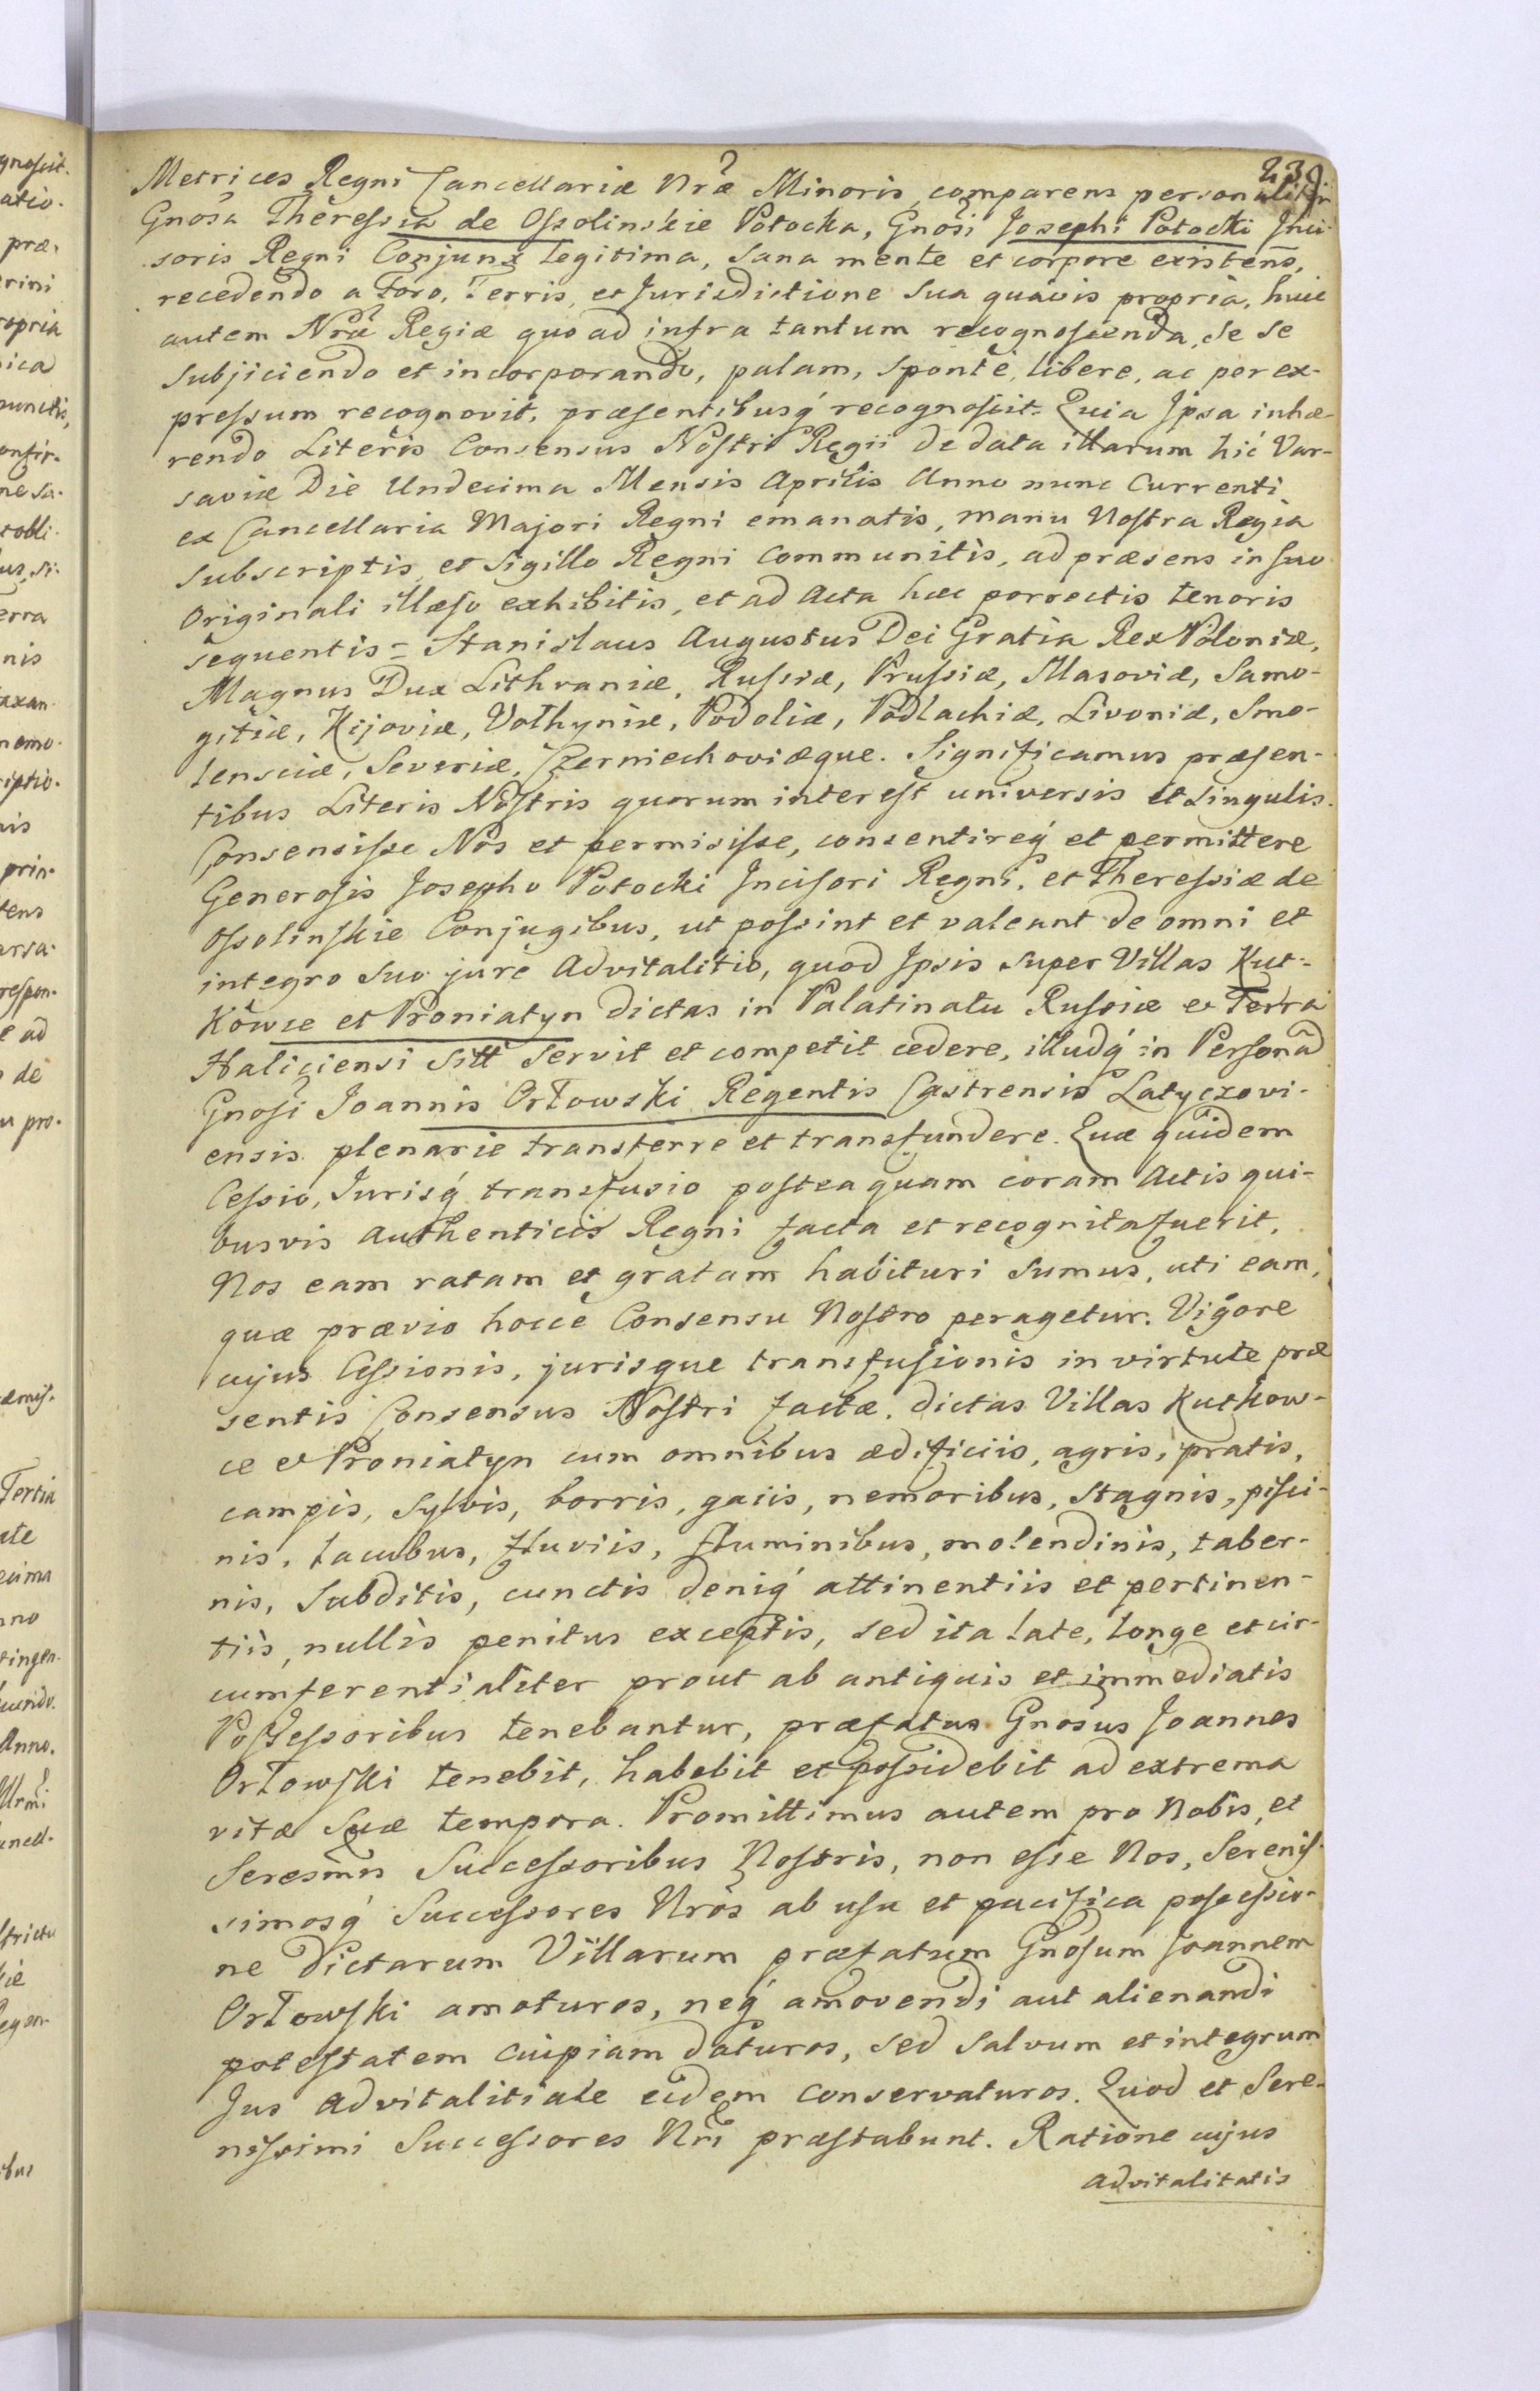 239
Metrices Regni Cancellariæ Nræ Minoris, comparens personaliter
Gnosa Theressia de Ossolinskie Potocka, Gnosi Josephi Potocki Inci-
soris Regni Conjunx legitima, sana mente et corpore existens,
recedendo a Foro, Terris, et Jurisdictione sua quavis propria, huic
autem Nræ Regiæ quo ad infra tantum recognoscenda, se se
subjiciendo et incorporando, palam, sponte, libere, ac per ex-
pressum recognovit, præsentibusq́ recognoscit. Quia Ipsa inhæ-
rendo Literis Consensus Nostri Regii de data illarum hic Var-
saviæ Die Undecima Mensis Aprilis Anno nunc Currenti
ex Cancellaria Majori Regni emanatis, manu Nostra Regia
subscriptis, et Sigillo Regni communitis, ad præsens in suo
Originali illæso exhibitis, et ad Acta hæc porrectis tenoris
sequentis = Stanislaus Augustus Dei Gratia Rex Poloniæ,
Magnus Dux Lithvaniæ, Russiæ, Prussiæ, Masoviæ, Samo-
gitiæ, Kijoviæ, Volhyniæ, Podoliæ, Podlachiæ, Livoniæ, Smo-
lensciæ, Severiæ, Czerniechoviæque. Significamus præsen-
tibus Literis Nostris quorum interest universis et singulis.
Consensisse Nos et permisisse, consentireq́ et permittere
Generosis Josepho Potocki Incisori Regni, et Theressiæ de
Ossolinskie Conjugibus, ut possint et valeant de omni et
integro suo jure Advitalitio, quod Ipsis super Villas Kut-
kowce et Proniatyn dictas in Palatinatu Russiæ et Terra
Haliciensi sitt servit et competit cedere, illudq́ in Personã
Gnosi Joannis Orłowski Regentis Castrensis Latyczovi-
ensis plenarie transferre et transfundere. Quæ quidem
Cessio, Jurisq́ transfusio posteaquam coram Actis qui-
busvis Authenticis Regni facta et recognita fuerit,
Nos eam ratam et gratam habituri sumus, uti eam,
quæ prævio hocce Consensu Nostro peragetur. Vigore
cujus Cessionis, jurisque transfusionis in virtute præ
sentis Consensus Nostri factæ, dictas Villas Kutkow-
ce et Proniatyn cum omnibus ædificiis, agris, pratis,
campis, sylvis, borris, gaiis, nemoribus, stagnis, pisci-
nis, lacubus, fluviis, fluminibus, molendinis, taber-
nis, Subditis, cunctis deniq́ attinentiis et pertinen-
tiis, nullis penitus exceptis, sed ita late, longe et cir-
cumferentialiter prout ab antiquis et immediatis
Possessoribus tenebantur, præfatus Gnosus Joannes
Orłowski tenebit, habebit et possidebit ad extrema
vitæ suæ tempora. Promittimus autem pro Nobis, et
Seresmis Successoribus Nostris, non esse Nos, Serenis-
simosq́ Successores Nros ab usu et pacifica possessio-
ne Dictarum Villarum præfatum Gnosum Joannem
Orłowski amoturos, neq́ amovendi aut alienandi
potestatem cuipiam daturos, sed salvum et integrum
Jus advitalitiale eidem conservaturos. Quod et Sere-
nissimi Successores Nri præstabunt. Ratione cujus
advitalitatis